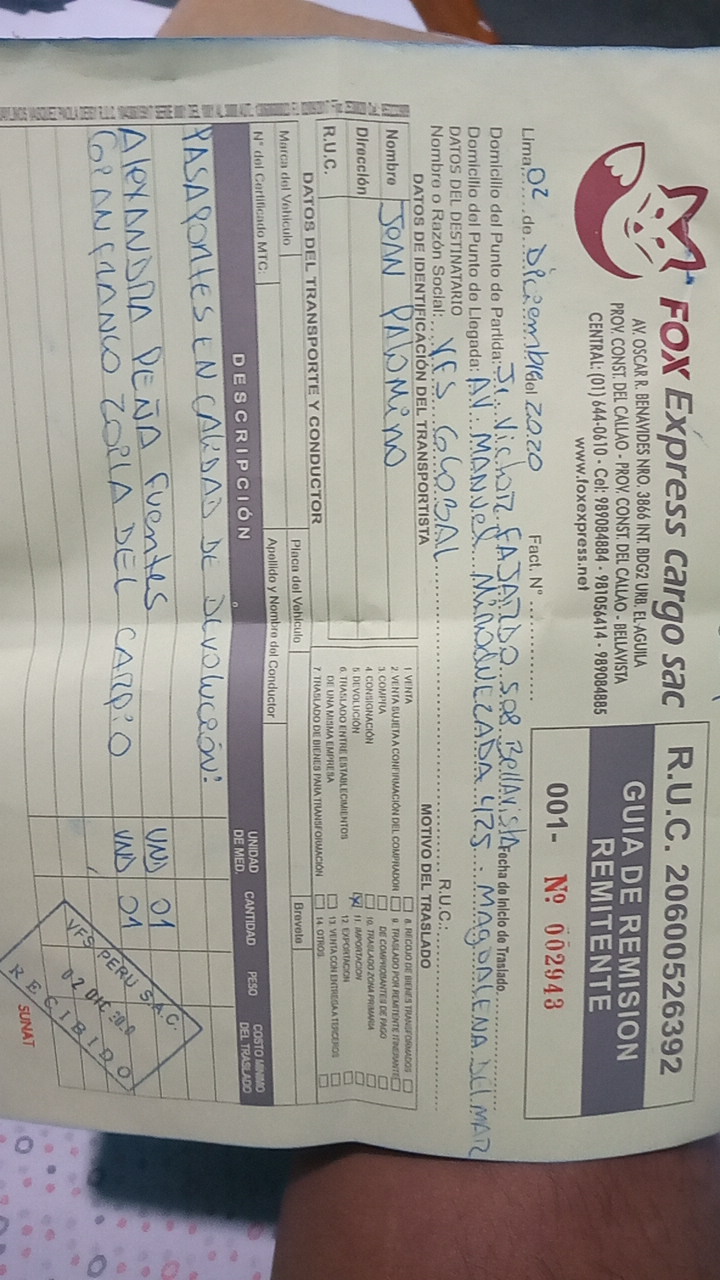 FOX Express cargo sac
AV. OSCAR R. BENAVIDES NRO. 3866 INT. BDG2 URB. EL AGUILA
PROV. CONST. DEL CALLAO - PROV. CONST. DEL CALLAO - BELLAVISTA
CENTRAL: (01) 644-0610 - Cel: 989084884 - 981056414 - 989084885
www.foxexpress.net
R.U.C. 20600526392
GUIA DE REMISION
REMITENTE
001- Nº 002943
Lima, 02 de Diciembre del 2020 Fact. N°
Fecha de Inicio de Traslado
Domicilio del Punto de Partida: Jr. Victor FAJARDO 508 Bellavista
Domicilio del Punto de Llegada: AV. MANUEL MIROQUEZADA 425 - MAGDALENA DEL MAR
DATOS DEL DESTINATARIO
Nombre o Razón Social: VFS GLOBAL R.U.C.:
DATOS DE IDENTIFICACIÓN DEL TRANSPORTISTA
Nombre JOAN PALOMINO
Dirección
R.U.C.
MOTIVO DEL TRASLADO
1 VENTA
2 VENTA SUJETA A CONFIRMACIÓN DEL COMPRADOR
3. COMPRA
4. CONSIGNACIÓN
5. DEVOLUCIÓN
6. TRASLADO ENTRE ESTABLECIMIENTOS
DE UNA MISMA EMPRESA
7. TRASLADO DE BIENES PARA TRANSFORMACIÓN
8. RECOJO DE BIENES TRANSFORMADOS
9. TRASLADO POR REMITENTE ITINERANTE
DE COMPROBANTES DE PAGO
10. TRASLADO ZONA PRIMARIA
11. IMPORTACION
12. EXPORTACION
13. VENTA CON ENTREGA A TERCEROS
14. OTROS
DATOS DEL TRANSPORTE Y CONDUCTOR
Marca del Vehículo Placa del Vehículo
N° del Certificado MTC. Apellido y Nombre del Conductor Brevete
DESCRIPCIÓN UNIDAD DE MED. CANTIDAD PESO COSTO MINIMO DEL TRASLADO
PASAPORTES EN CALIDAD DE DEVOLUCIÓN:
ALEXANDRA PEÑA FUENTES UND 01
GIANFRANCO ZOILA DEL CARPIO UND 01
VFS PERU S.A.C.
02 DIC 2020
RECIBIDO
SUNAT